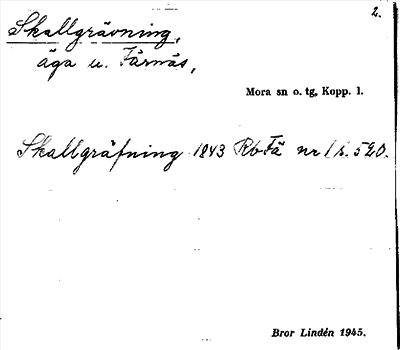 2.
Skallgrävning,
äga u. Färnäs,
Mora sn o. tg, Kopp. l.
Skallgräfning 1843 RbFä nr 1 s. 520.
Bror Lindén 1945.